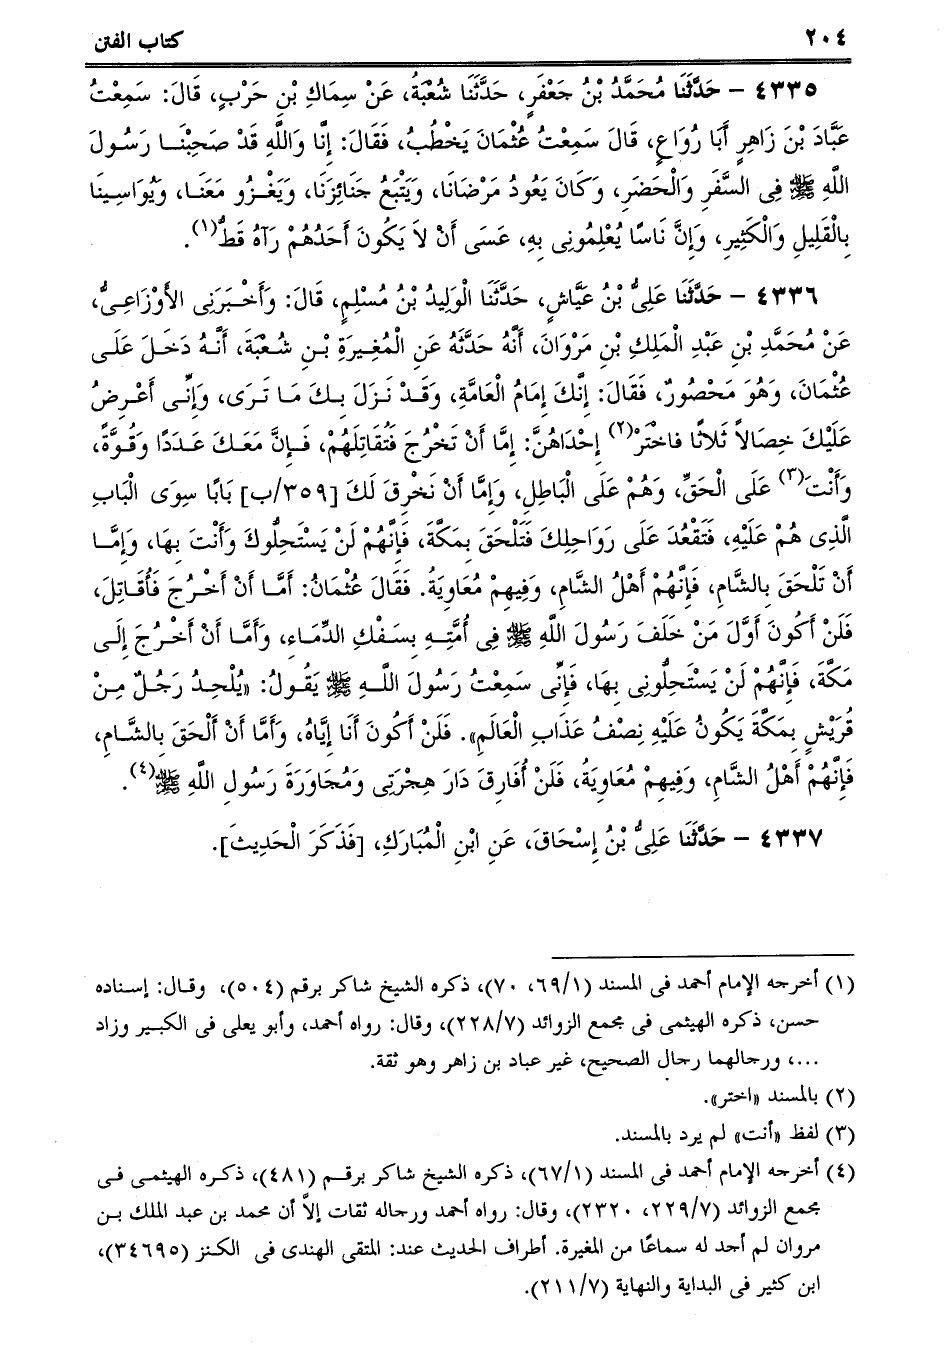 ٢٠٤ كتاب الفتن
٤٣٣٥ – حَدَّثَنَا مُحَمَّدُ بْنُ جَعْفَرٍ، حَدَّثَنَا شُعْبَةُ، عَنْ سِمَاكِ بْنِ حَرْبٍ، قَالَ: سَمِعْتُ
عَبَّادَ بْنَ زَاهِرٍ أَبَا رُوَاعٍ، قَالَ سَمِعْتُ عُثْمَانَ يَخْطُبُ، فَقَالَ: إِنَّا وَاللَّهِ قَدْ صَحِبْنَا رَسُولَ
اللَّهِ ﷺ فِى السَّفَرِ وَالْحَضَرِ، وَكَانَ يَعُودُ مَرْضَانَا، وَيَتْبَعُ جَنَائِزَنَا، وَيَغْزُو مَعَنَا، وَيُوَاسِينَا
بِالْقَلِيلِ وَالْكَثِيرِ، وَإِنَّ نَاسًا يُعْلِمُونِى بِهِ، عَسَى أَنْ لاَ يَكُونَ أَحَدُهُمْ رَآهُ قَطُّ(١).
٤٣٣٦ – حَدَّثَنَا عَلِىُّ بْنُ عَيَّاشٍ، حَدَّثَنَا الْوَلِيدُ بْنُ مُسْلِمٍ، قَالَ: وَأَخْبَرَنِى الأَوْزَاعِىُّ،
عَنْ مُحَمَّدِ بْنِ عَبْدِ الْمَلِكِ بْنِ مَرْوَانَ، أَنَّهُ حَدَّثَهُ عَنِ الْمُغِيرَةِ بْنِ شُعْبَةَ، أَنَّهُ دَخَلَ عَلَى
عُثْمَانَ، وَهُوَ مَحْصُورٌ، فَقَالَ: إِنَّكَ إِمَامُ الْعَامَّةِ، وَقَدْ نَزَلَ بِكَ مَا تَرَى، وَإِنِّى أَعْرِضُ
عَلَيْكَ خِصَالاً ثَلاَثًا فَاخْتَرْ(٢) إِحْدَاهُنَّ: إِمَّا أَنْ تَخْرُجَ فَتُقَاتِلَهُمْ، فَإِنَّ مَعَكَ عَدَدًا وَقُوَّةً،
وَأَنْتَ(٣) عَلَى الْحَقِّ، وَهُمْ عَلَى الْبَاطِلِ، وَإِمَّا أَنْ نَخْرِقَ لَكَ [٣٥٩/ب] بَابًا سِوَى الْبَابِ
الَّذِى هُمْ عَلَيْهِ، فَتَقْعُدَ عَلَى رَوَاحِلِكَ فَتَلْحَقَ بِمَكَّةَ، فَإِنَّهُمْ لَنْ يَسْتَحِلُّوكَ وَأَنْتَ بِهَا، وَإِمَّا
أَنْ تَلْحَقَ بِالشَّامِ، فَإِنَّهُمْ أَهْلُ الشَّامِ، وَفِيهِمْ مُعَاوِيَةُ. فَقَالَ عُثْمَانُ: أَمَّا أَنْ أَخْرُجَ فَأُقَاتِلَ،
فَلَنْ أَكُونَ أَوَّلَ مَنْ خَلَفَ رَسُولَ اللَّهِ ﷺ فِى أُمَّتِهِ بِسَفْكِ الدِّمَاءِ، وَأَمَّا أَنْ أَخْرُجَ إِلَى
مَكَّةَ، فَإِنَّهُمْ لَنْ يَسْتَحِلُّونِى بِهَا، فَإِنِّى سَمِعْتُ رَسُولَ اللَّهِ ﷺ يَقُولُ: «يُلْحِدُ رَجُلٌ مِنْ
قُرَيْشٍ بِمَكَّةَ يَكُونُ عَلَيْهِ نِصْفُ عَذَابِ الْعَالَمِ». فَلَنْ أَكُونَ أَنَا إِيَّاهُ، وَأَمَّا أَنْ أَلْحَقَ بِالشَّامِ،
فَإِنَّهُمْ أَهْلُ الشَّامِ، وَفِيهِمْ مُعَاوِيَةُ، فَلَنْ أُفَارِقَ دَارَ هِجْرَتِى وَمُجَاوَرَةَ رَسُولِ اللَّهِ ﷺ(٤).
٤٣٣٧ – حَدَّثَنَا عَلِىُّ بْنُ إِسْحَاقَ، عَنِ ابْنِ الْمُبَارَكِ، [فَذَكَرَ الْحَدِيثَ].
(١) أخرجه الإمام أحمد فى المسند (٦٩/١، ٧٠)، ذكره الشيخ شاكر برقم (٥٠٤)، وقال: إسناده
حسن، ذكره الهيثمى فى مجمع الزوائد (٢٢٨/٧)، وقال: رواه أحمد، وأبو يعلى فى الكبير وزاد
...، ورجالهما رجال الصحيح، غير عباد بن زاهر وهو ثقة.
(٢) بالمسند «اختر».
(٣) لفظ «أنت» لم يرد بالمسند.
(٤) أخرجه الإمام أحمد فى المسند (٦٧/١)، ذكره الشيخ شاكر برقم (٤٨١)، ذكره الهيثمى فى
مجمع الزوائد (٢٢٩/٧، ٢٣٢٠)، وقال: رواه أحمد ورجاله ثقات إلاَّ أن محمد بن عبد الملك بن
مروان لم أجد له سماعًا من المغيرة. أطراف الحديث عند: المتقى الهندى فى الكنز (٣٤٦٩٥)،
ابن كثير فى البداية والنهاية (٢١١/٧).